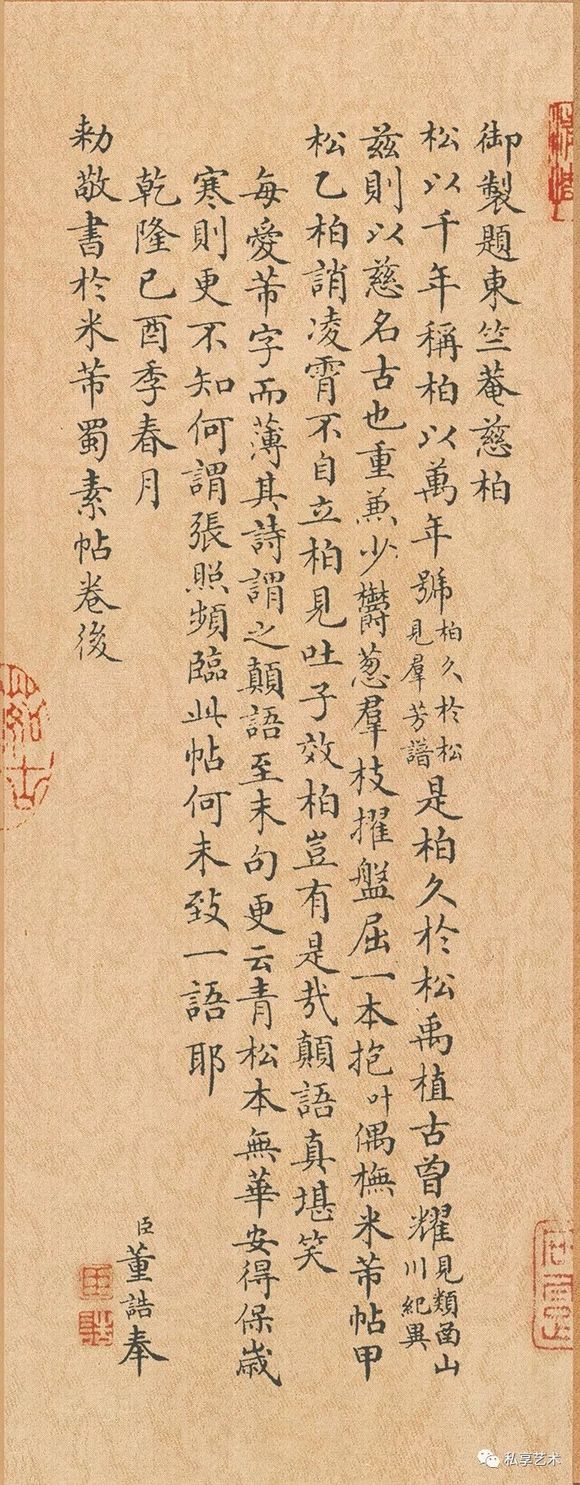 御製題東竺菴慈柏
松以千年稱柏以萬年號柏久於松見羣芳譜是柏久於松禹植古曾耀見類函山川紀異
茲則以慈名古也重兼少鬱葱羣枝擢盤屈一本抱叶偶橅米芾帖甲
松乙柏誚凌霄不自立柏見吐子效柏豈有是㢤顛語真堪笑
每愛芾字而薄其詩謂之顛語至末句更云青松本無華安得保歲
寒則更不知何謂張照頻臨此帖何未致一語耶
乾隆己酉季春月
臣董誥奉
勅敬書於米芾蜀素帖卷後
私享艺术